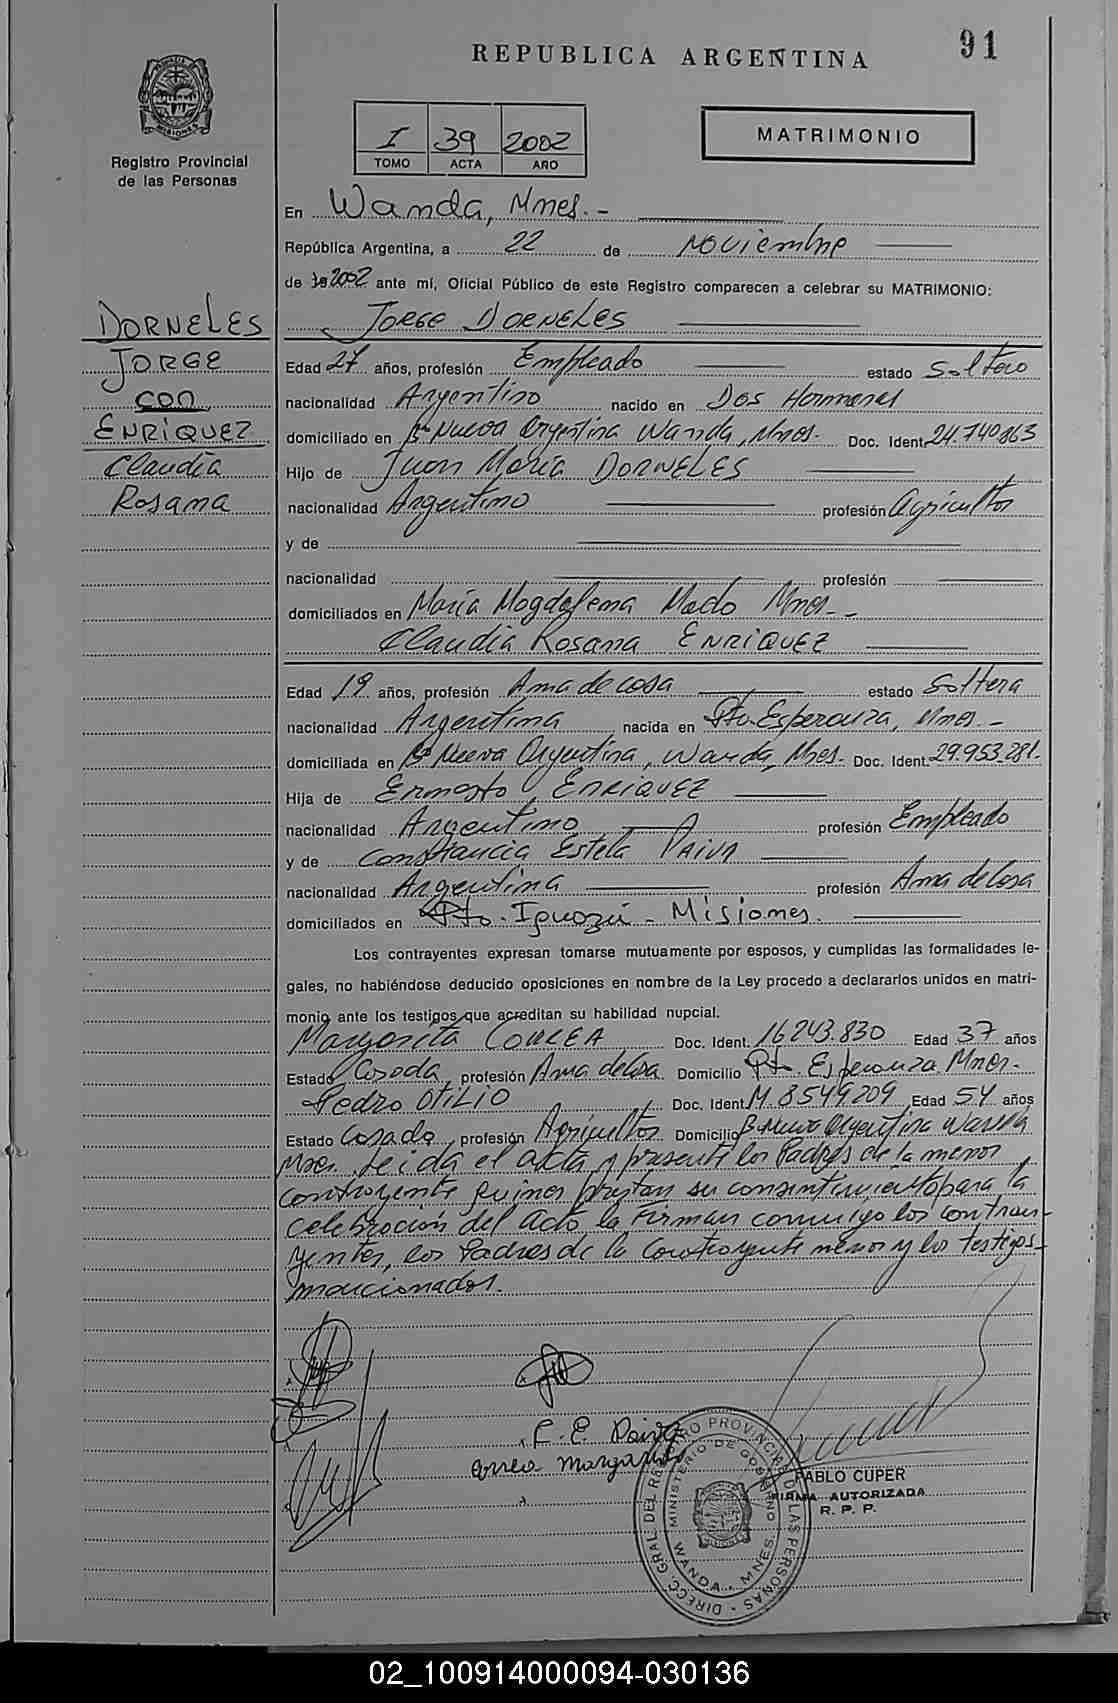 91
REPUBLICA ARGENTINA
MISIONES
Registro Provincial
de las Personas
I 39 2002
TOMO ACTA AÑO
MATRIMONIO
En Wanda, Mnes.-
República Argentina, a 22 de Noviembre
de 2002 ante mí, Oficial Público de este Registro comparecen a celebrar su MATRIMONIO:
DORNELES
JORGE
con
ENRIQUEZ
Claudia
Rosana
JORGE DORNELES
Edad 27 años, profesión Empleado estado Soltero
nacionalidad Argentino nacido en Dos Hermanas
domiciliado en Bº Nueva Argentina Wanda, Mnes.- Doc. Ident. 24.740.863
Hijo de Juan María DORNELES
nacionalidad Argentino profesión Agricultor
y de
nacionalidad profesión
domiciliados en María Magdalena Mado Mnes.-
Claudia Rosana ENRIQUEZ
Edad 19 años, profesión Ama de casa estado Soltera
nacionalidad Argentina nacida en Pto. Esperanza, Mnes.-
domiciliada en Bº Nueva Argentina, Wanda, Mnes.- Doc. Ident. 29.953.281.
Hija de Ernesto ENRIQUEZ
nacionalidad Argentino profesión Empleado
y de Constancia Estela PAIVA
nacionalidad Argentina profesión Ama de Casa
domiciliados en Pto. Iguazú - Misiones.
Los contrayentes expresan tomarse mutuamente por esposos, y cumplidas las formalidades le-
gales, no habiéndose deducido oposiciones en nombre de la Ley procedo a declararlos unidos en matri-
monio ante los testigos que acreditan su habilidad nupcial.
Margarita CORREA Doc. Ident. 16243.830 Edad 37 años
Estado Casada, profesión Ama de Casa Domicilio Pto. Esperanza Mnes.-
Pedro OTILIO Doc. Ident. M 8549209 Edad 54 años
Estado Casado, profesión Agricultor Domicilio Bº Nueva Argentina Wanda
Mnes. Leída el acta y presente los Padres de la menor
contrayente quines prestan su consentimiento para la
celebración del acto la Firman conmigo los contra-
yentes, los Padres de la Contrayente menor y los testigos
mencionados.
C. E. Paiva
Correa Margarita
DIRECC. GRAL. DEL REGISTRO PROVINCIAL DE LAS PERSONAS
MINISTERIO DE GOBIERNO
WANDA - MNES.
PABLO CUPER
FIRMA AUTORIZADA
R. P. P.
02_100914000094-030136